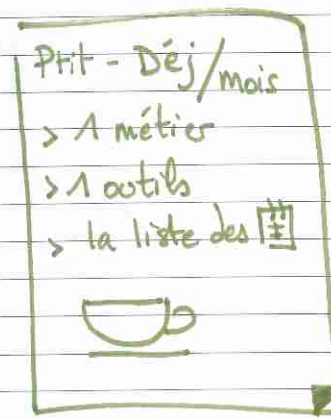 Ptit - Déj/mois
> 1 métier
> 1 outils
> la liste des